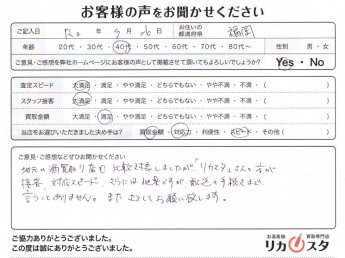 お客様の声をお聞かせください
ご記入日 R2 年 9 月 26 日 お住いの都道府県 福岡
年齢 20代・30代・40代・50代・60代・70代・80代〜 性別 男・女
ご意見・ご感想を弊社ホームページにお客様の声として掲載させて頂いてもよろしいでしょうか? Yes・No
査定スピード 大満足・満足・やや満足・どちらでもない・やや不満・不満・( )
スタッフ接客 大満足・満足・やや満足・どちらでもない・やや不満・不満・( )
買取金額 大満足・満足・やや満足・どちらでもない・やや不満・不満・( )
当店をお選びいただきました決め手は? 買取金額・対応力・利便性・スピード・その他( )
ご意見・ご感想などぜひお聞かせください
地元の酒買取り店も比較対象しましたが「リカスタ」さんの方が
接客、対応スピード、さらには地葉ですが配送の手続きまで
言うことありません。また よろしくお願い致します。
ご協力ありがとうございました。
この度は誠にありがとうございました。
お酒高価買取専門店
リカスタ